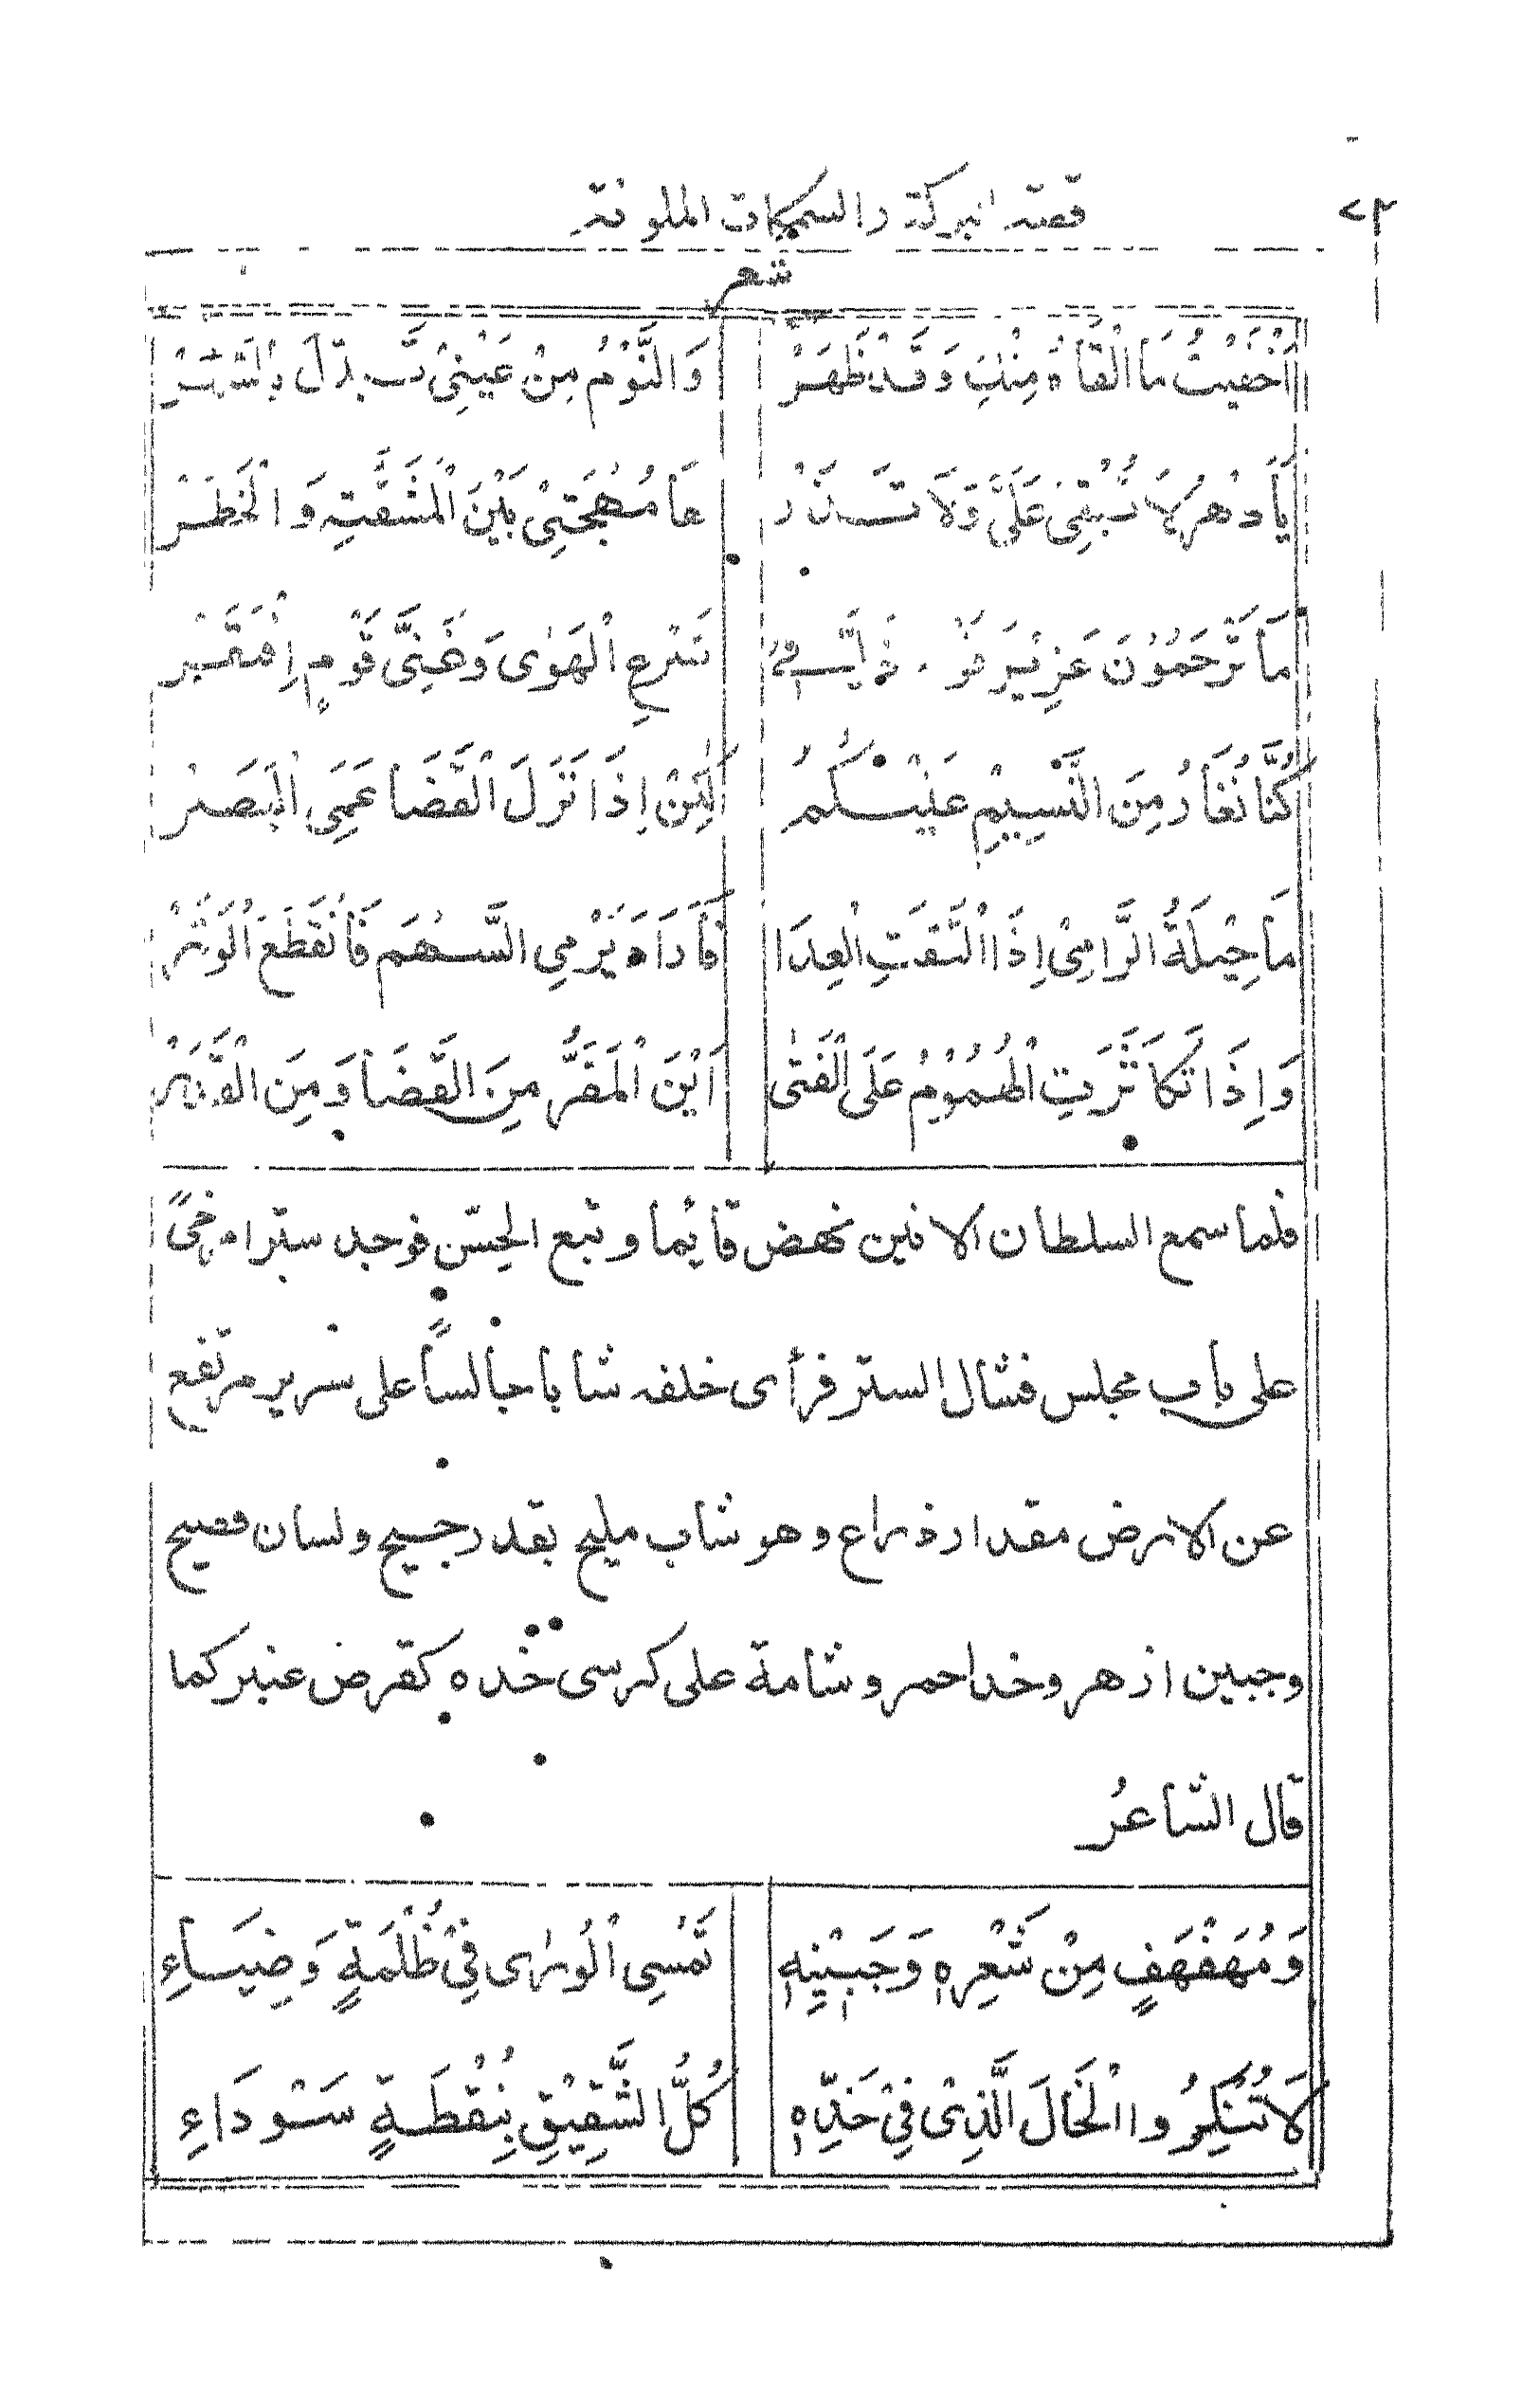 ٧٢ قصة البركة والسمكات الملونة
شعر
اَخْفَيْتُ مَا اَلْقَاهُ مِنْكَ وَقَدْ ظَهَرْ وَالنَّوْمُ مِنْ عَيْنِىْ تَبَدَّلَ بِالسَّهَرْ
يَا دَهْرُ لَا تُبْقِىْ عَلَىَّ وَلَا تَذَرْ هَا مُهْجَتِىْ بَيْنَ الْمَشَقَّةِ وَالْخَطَرْ
مَا تَرْحَمُوْنَ عَزِيْزَ قَوْمٍ ذَلَّ فِىْ شَرْعِ الْهَوٰى وَغَنِىَّ قَوْمٍ اِفْتَقَرْ
كُنَّا نُغَارُ مِنَ النَّسِيْمِ عَلَيْكُمْ لٰكِنْ اِذَا نَزَلَ الْقَضَا عَمِىَ الْبَصَرْ
مَا حِيْلَةُ الرَّامِىْ اِذَا الْتَقَتِ الْعِدَا فَاَرَادَ يَرْمِى السَّهْمَ فَانْقَطَعَ الْوَتَرْ
وَاِذَا تَكَاثَرَتِ الْهُمُوْمُ عَلَى الْفَتٰى اَيْنَ الْمَفَرُّ مِنَ الْقَضَا وَمِنَ الْقَدَرْ
فلما سمع السلطان الانين نهض قايما وتبع الحسّ فوجد سترا مرخىً
على باب مجلس فشال الستر فرأى خلفه شابا جالساً على سرير مرتفع
عن الارض مقدار ذراع وهو شاب مليح بقد رجيح ولسان فصيح
وجبين ازهر وخد احمر وشامة على كرسى خده كقرص عنبر كما
قال الشاعرُ
وَمُهَفْهَفٍ مِنْ شَعْرِهٖ وَجَبِيْنِهٖ تَمْسِى الْوَرٰى فِىْ ظُلْمَةٍ وَضِيَاءِ
لَا تُنْكِرُوا الْخَالَ الَّذِىْ فِىْ خَدِّهٖ كُلُّ الشَّقِيْقِ بِنُقْطَةٍ سَوْدَاءِ